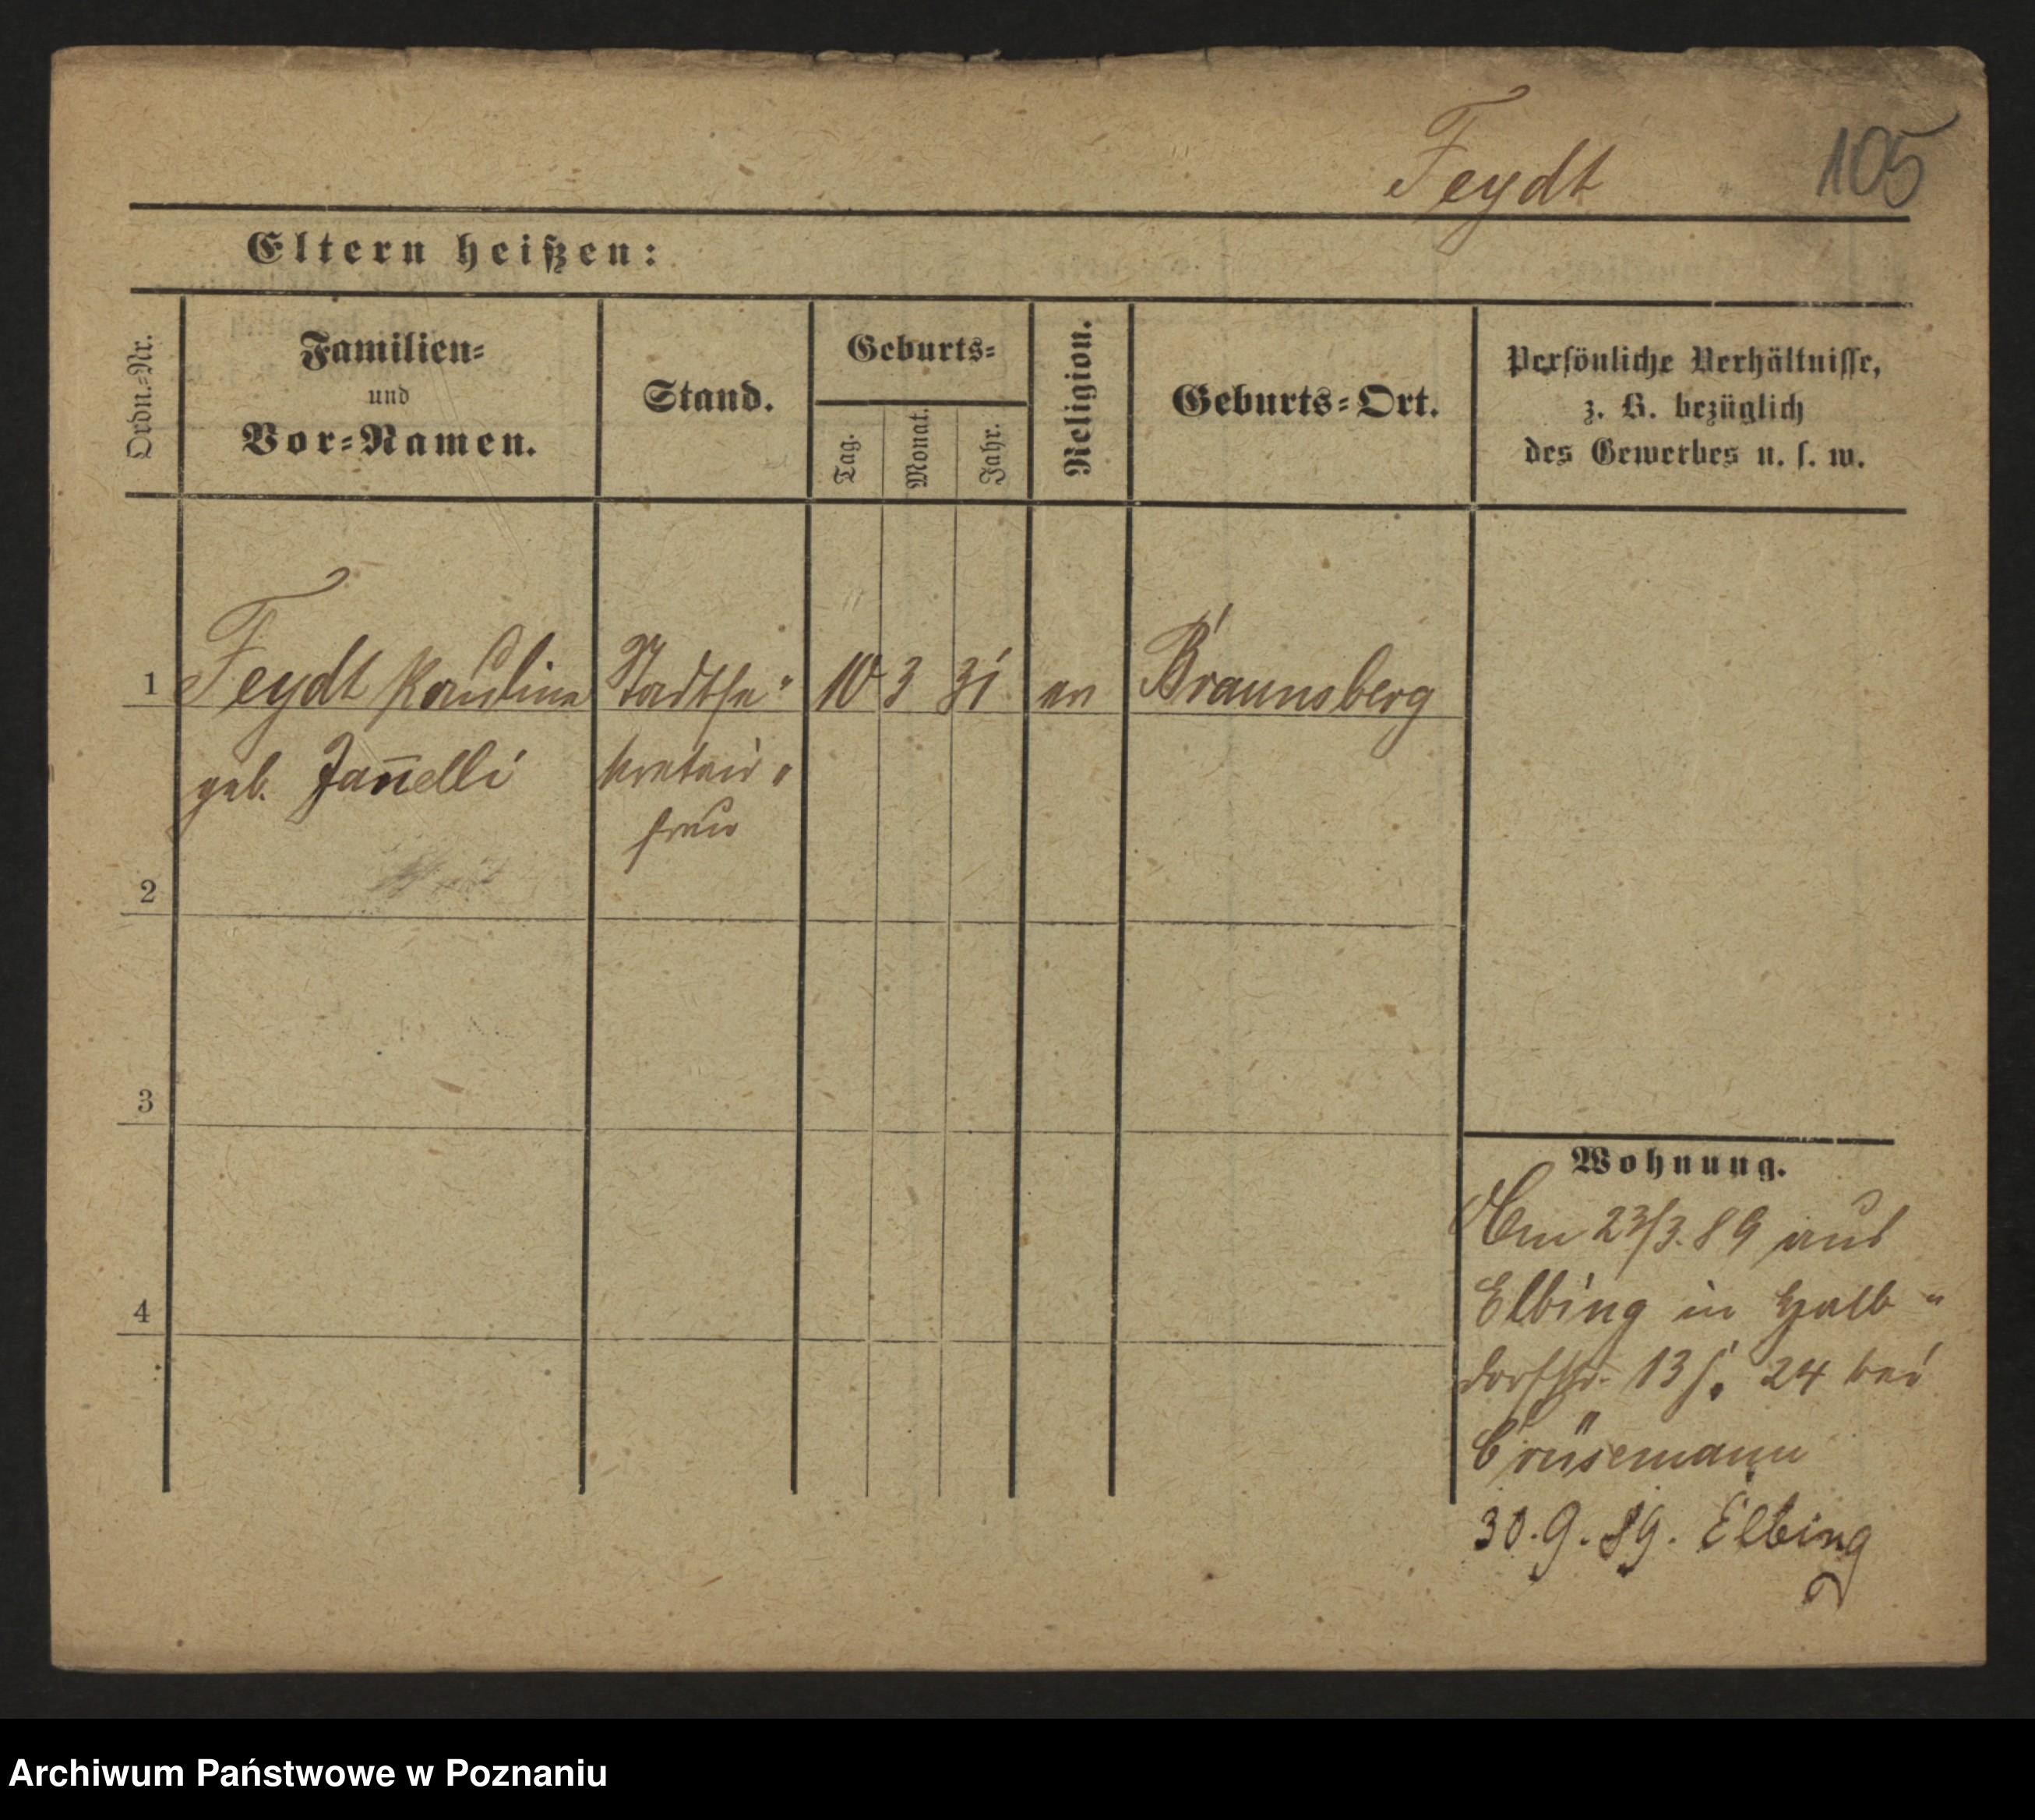 Feydt
105
Eltern heißen:
Ordn.-Nr.
Familien-
und
Vor-Namen.
Stand.
Geburts-
Tag.
Monat.
Jahr.
Religion.
Geburts-Ort.
Persönliche Verhältnisse,
z. B. bezüglich
des Gewerbes u. s. w.
1 Feydt Pauline Stadtse- 10 3 31 ev Braunsberg
geb. Jan̄elli kretair-
frau
2
3
4
Wohnung.
Am 23/3. 89 aus
Elbing in Halb-
dorfstr. 13 24 bei
Crüsemann
30. 9. 89. Elbing
Archiwum Państwowe w Poznaniu